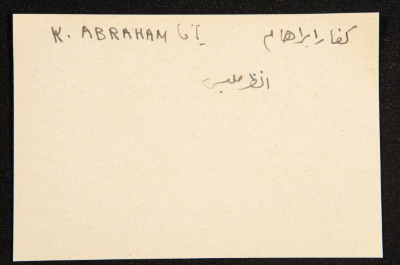 K. ABRAHAM يافا كفار ابراهام
انظر ملبس